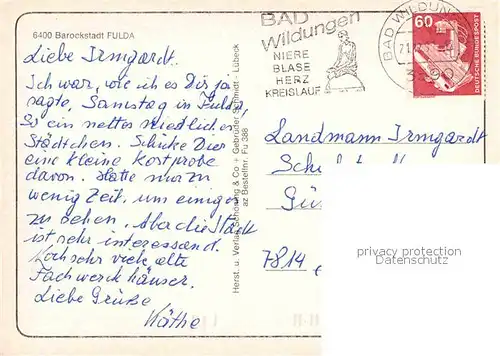 6400 Barockstadt FULDA
Liebe Irmgardt.
Ich war, wie ich es Dir ja
sagte, Samstag in Fulda,
So ein nettes niedliches
Städtchen. Schicke Dir
eine kleine Kostprobe
davon. Hatte nur zu
wenig Zeit, um einiges
zu sehen. Aber die Stadt
ist sehr interessand.
Noch sehr viele alte
Fachwerkhäuser.
Liebe Grüße
Käthe
Herst. u. Verlag Schöning & Co + Gebrüder Schmidt - Lübeck
az Bestellnr. Fu 388
BAD
Wildungen
NIERE
BLASE
HERZ
KREISLAUF
BAD WILDUN
3590
60
DEUTSCHE BUNDESPOST
Landmann Irmgardt
7814
privacy protection
Datenschutz